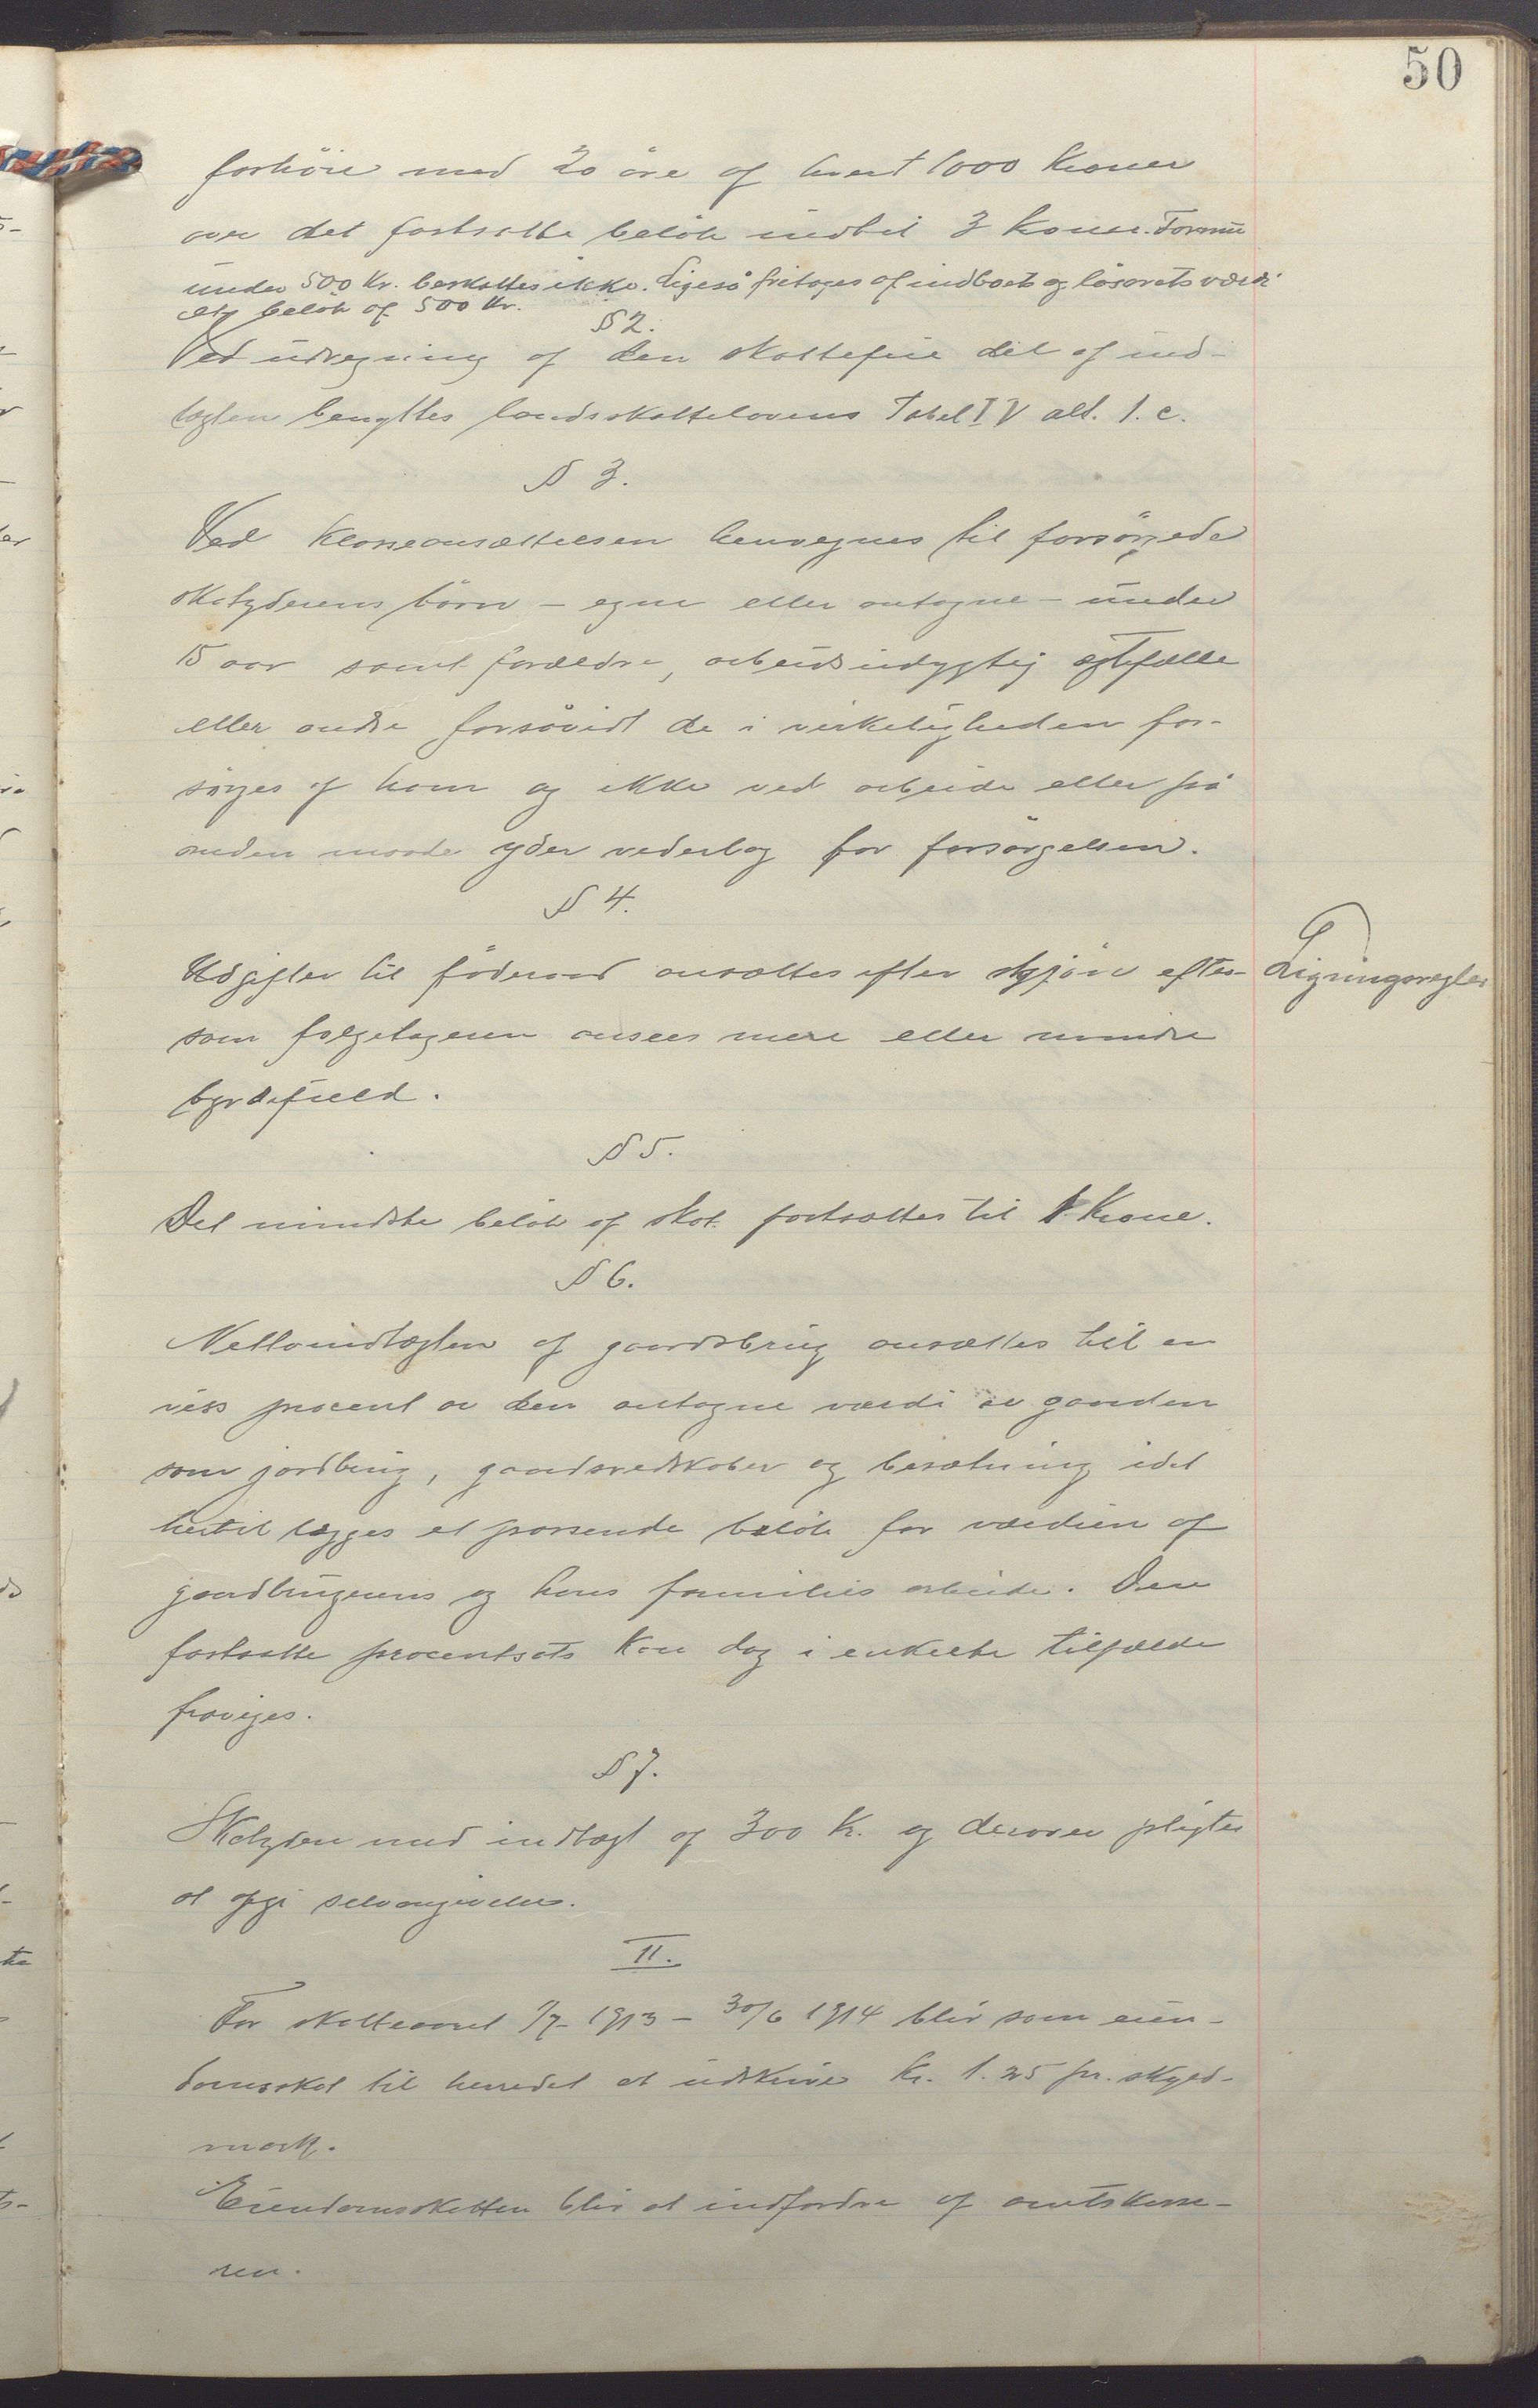 50
forhöie med 20 øre af hvert 1000 Kroner
over det fastsatte beløb indtil 3 Kroner. Formue
under 500 Kr. beskattes ikke. Ligeså fritages af indboets og løsørets værdi
et beløb af 500 Kr.
§ 2.
Ved udregning af den skattefrie del af ind-
tægten benyttes landsskattelovens Tabel IV alt. 1. c.
§ 3.
Ved Klasseansættelsen henregnes til forsørgede
skatyderens børn – egne eller antagne – under
15 aar samt forældre, arbeidsudygtig ægtefælle
eller andre forsåvidt de i virkeligheden for-
sörges af ham og ikke ved arbeide eller på
anden maade yder vederlag for forsörgelsen.
§ 4.
Udgifter til föderaad ansættes efter skjøn efter-
Ligningsregler
som folgetageren ansees mere eller mindre
byrdefuld.
§ 5.
Det mindste beløb af skat fastsættes til 1 Krone.
§ 6.
Nettoindtægten af gaardsbrug ansættes til en
viss procent av den antagne værdi av gaarden
som jordbrug, gaardsredskaber og besætning idet
hertil lægges et passende beløb for værdien af
gaardbrugerens og hans families arbeide. Den
fastsatte procentsats kan dog i enkelte tilfælde
fraviges.
§ 7.
Skatyder med indtægt af 300 Kr. og derover pligter
at opgi selvangivelse.
II.
For skatteaaret 1/7 1913 – 30/6 1914 blir som eien-
domsskat til herredet at udskrive Kr. 1.25 pr. skyld-
mark.
Eiendomsskatten blir at indfordre af amtskasse-
ren.